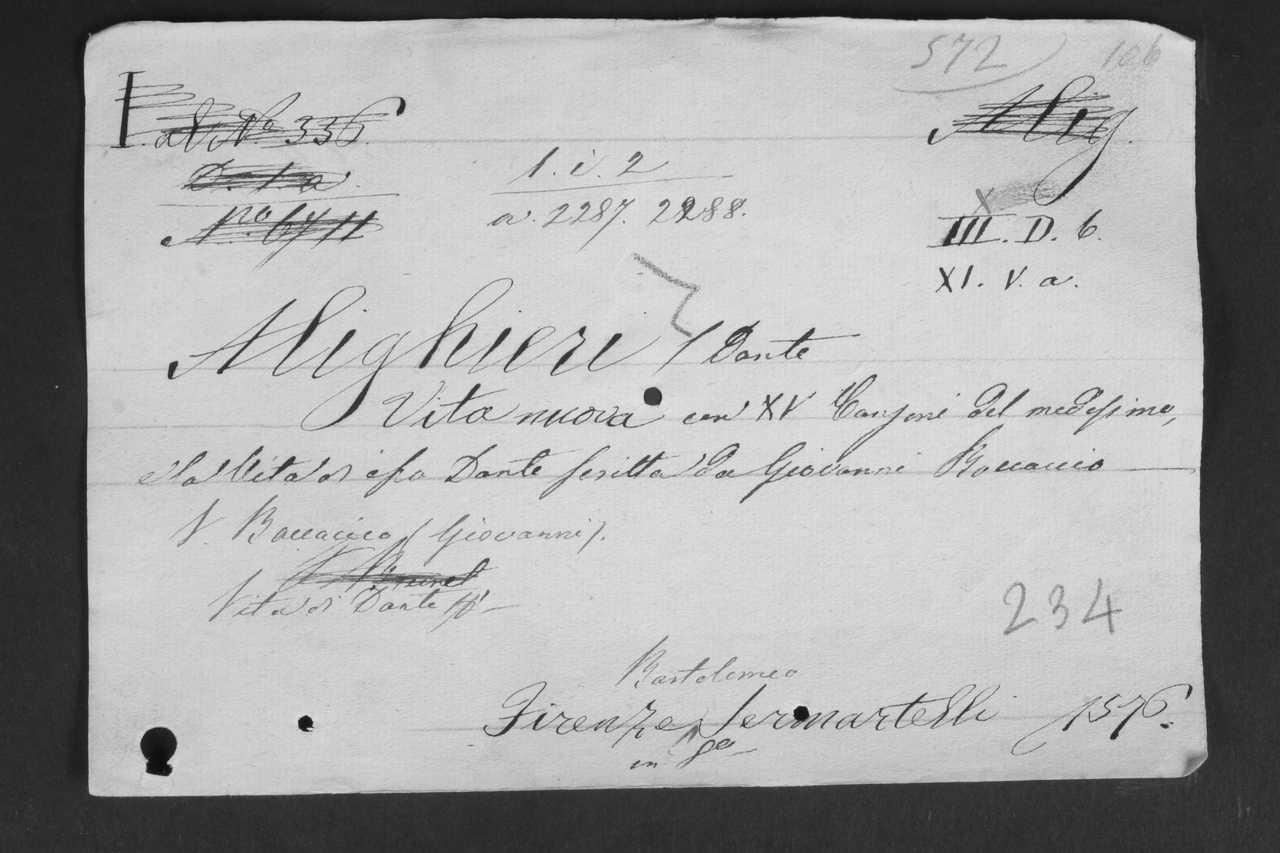 572) 106
I. ad No. 336. Alig.
D. 1. a
1. i. 2
No. 6711 a. 2287. 2288. III. D. 6.
XI. V. a.
Alighieri / Dante
Vita nuova con XV Canzoni del medesimo,
e la Vita di esso Dante scritta da Giovanni Boccaccio
V. Boccaccio (Giovanni).
V. Brunet
Vita di Dante
234
Bartolomeo
Firenze Sermartelli 1576.
in 8o